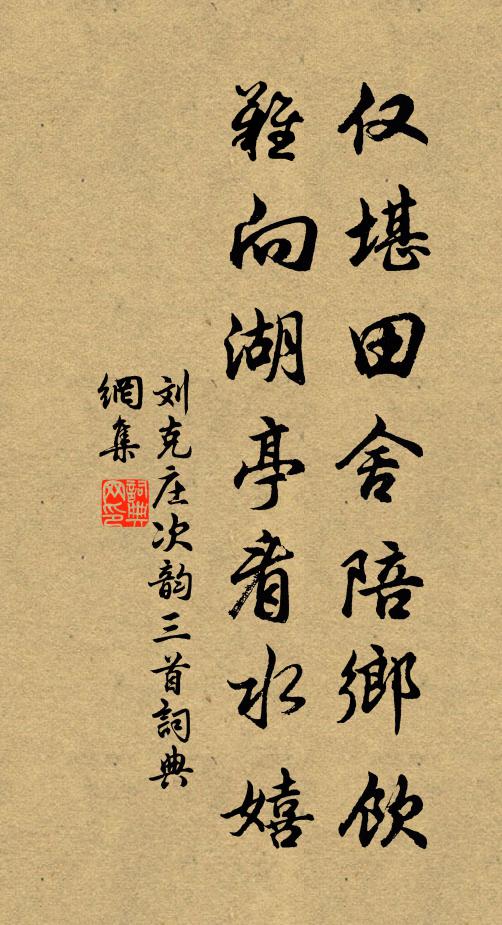 仅堪田舍陪鄉饮
難向湖亭看水嬉
刘克庄次韵三首詞典
網集
詞典
网印